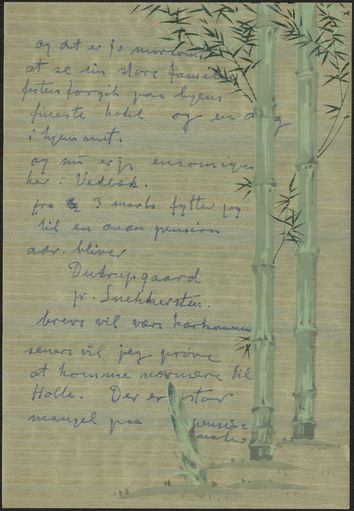 og det er jo morsomt
at se sin store familie
festen foregik paa byens
fineste hotel og en dag
i hjemmet.
og nu er jeg
her i Vedbæk.
fra 3 marts flytter jeg
til en anden pension
adr. bliver
Dutrupgaard
pr. Snekkersten.
breve vil være kærkommen
senere vil jeg prøve
at komme nærmere til
Holte. Der er stor
mangel paa pensio
nater